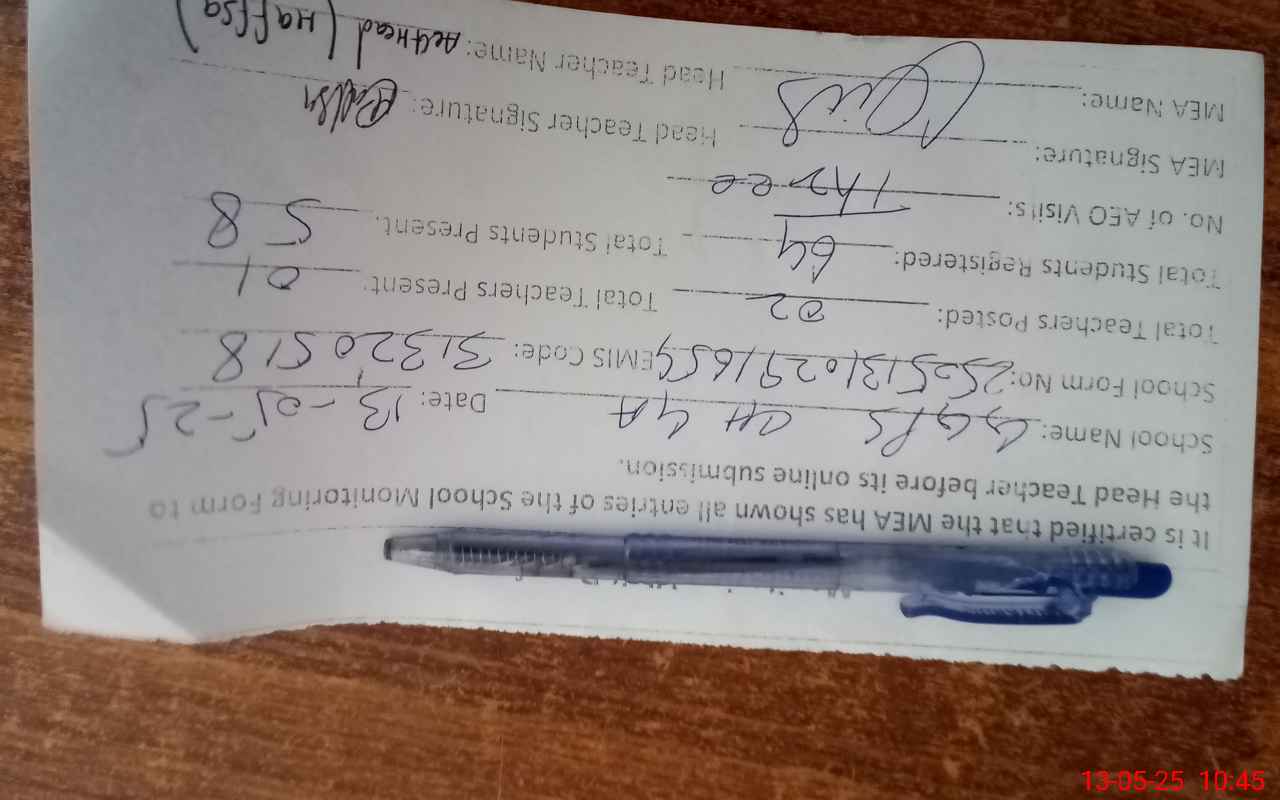 It is certified that the MEA has shown all entries of the School Monitoring Form to
the Head Teacher before its online submission.
School Name: GGPS CH 4A Date: 13-05-25
School Form No: EMIS Code: 31320518
Total Teachers Posted: 02 Total Teachers Present: 01
Total Students Registered: 64 Total Students Present: 58
No. of AEO Visits: Three
MEA Signature: Head Teacher Signature:
MEA Name: Head Teacher Name: Head (Haffsa)
13-05-25 10:45